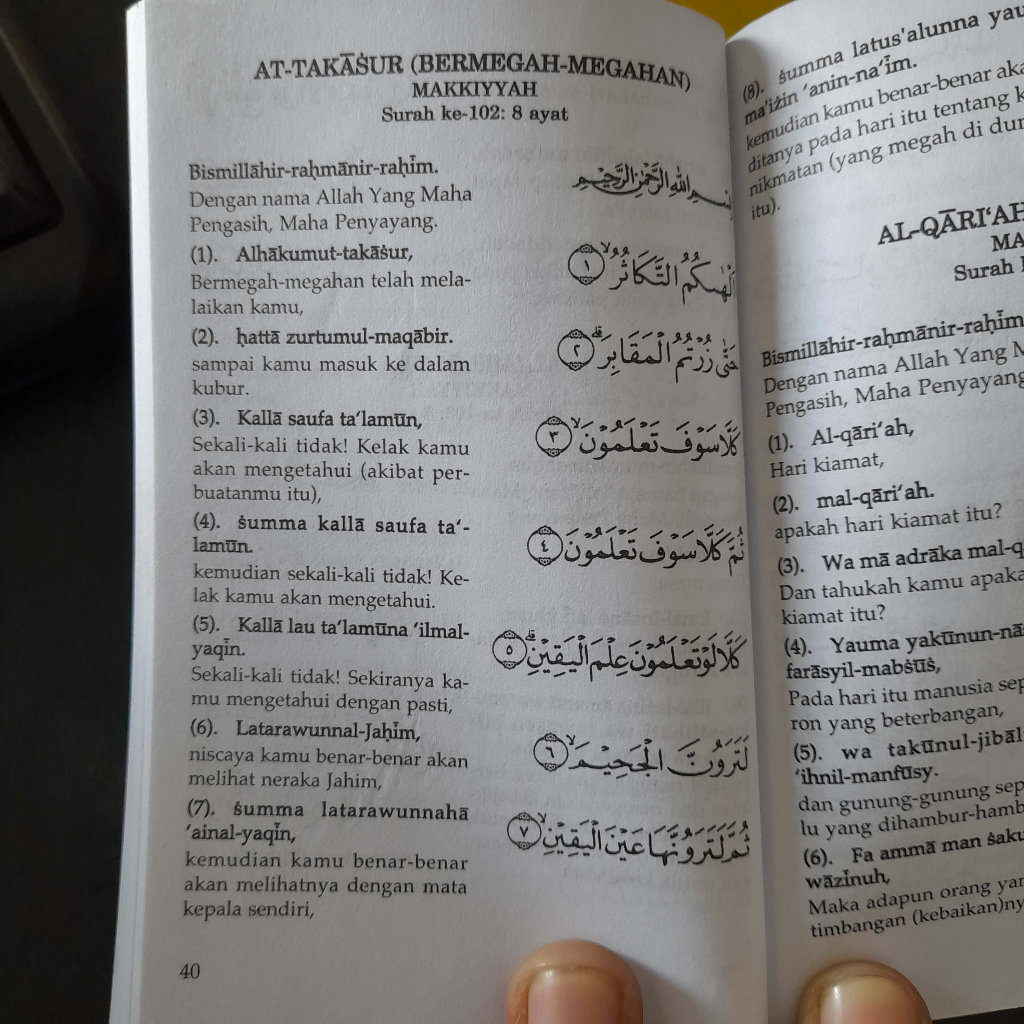 AT-TAKĀṠUR (BERMEGAH-MEGAHAN)
MAKKIYYAH
Surah ke-102: 8 ayat
Bismillāhir-raḥmānir-raḥīm.
بِسْمِ اللّٰهِ الرَّحْمٰنِ الرَّحِيْمِ
Dengan nama Allah Yang Maha
Pengasih, Maha Penyayang.
(1). Alhākumut-takāṡur,
اَلْهٰىكُمُ التَّكَاثُرُۙ ١
Bermegah-megahan telah mela-
laikan kamu,
(2). ḥattā zurtumul-maqābir.
حَتّٰى زُرْتُمُ الْمَقَابِرَۗ ٢
sampai kamu masuk ke dalam
kubur.
(3). Kallā saufa ta‘lamūn,
كَلَّا سَوْفَ تَعْلَمُوْنَۙ ٣
Sekali-kali tidak! Kelak kamu
akan mengetahui (akibat per-
buatanmu itu),
(4). ṡumma kallā saufa ta‘-
lamūn.
ثُمَّ كَلَّا سَوْفَ تَعْلَمُوْنَ ٤
kemudian sekali-kali tidak! Ke-
lak kamu akan mengetahui.
(5). Kallā lau ta‘lamūna ‘ilmal-
yaqīn.
كَلَّا لَوْ تَعْلَمُوْنَ عِلْمَ الْيَقِيْنِۗ ٥
Sekali-kali tidak! Sekiranya ka-
mu mengetahui dengan pasti,
(6). Latarawunnal-Jaḥīm,
لَتَرَوُنَّ الْجَحِيْمَۙ ٦
niscaya kamu benar-benar akan
melihat neraka Jahim,
(7). ṡumma latarawunnahā
‘ainal-yaqīn,
ثُمَّ لَتَرَوُنَّهَا عَيْنَ الْيَقِيْنِۙ ٧
kemudian kamu benar-benar
akan melihatnya dengan mata
kepala sendiri,
40
(8). ṡumma latus'alunna yau
ma'iżin ‘anin-na‘īm.
kemudian kamu benar-benar aka
ditanya pada hari itu tentang k
nikmatan (yang megah di dun
itu).
AL-QĀRI‘AH
MA
Surah
Bismillāhir-raḥmānir-raḥīm
Dengan nama Allah Yang M
Pengasih, Maha Penyayang
(1). Al-qāri‘ah,
Hari kiamat,
(2). mal-qāri‘ah.
apakah hari kiamat itu?
(3). Wa mā adrāka mal-q
Dan tahukah kamu apaka
kiamat itu?
(4). Yauma yakūnun-nā
farāsyil-mabṡūṡ,
Pada hari itu manusia sep
ron yang beterbangan,
(5). wa takūnul-jibāl
‘ihnil-manfūsy.
dan gunung-gunung sep
lu yang dihambur-hamb
(6). Fa ammā man ṡaku
wāzīnuh,
Maka adapun orang yan
timbangan (kebaikan)ny